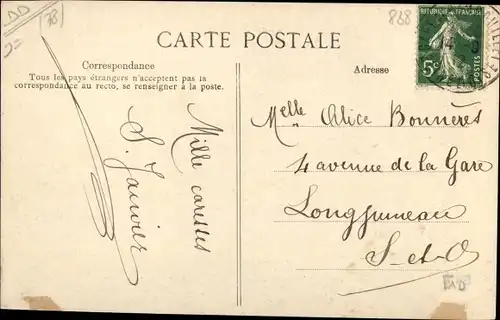 DD
(78)
868
CARTE POSTALE
Correspondance
Tous les pays étrangers n'acceptent pas la
correspondance au recto, se renseigner à la poste.
Adresse
5c
POSTES
Melle Alice Bonnères
4 avenue de la Gare
Longjumeau
S-et-O
Mille caresses
S. Janvier